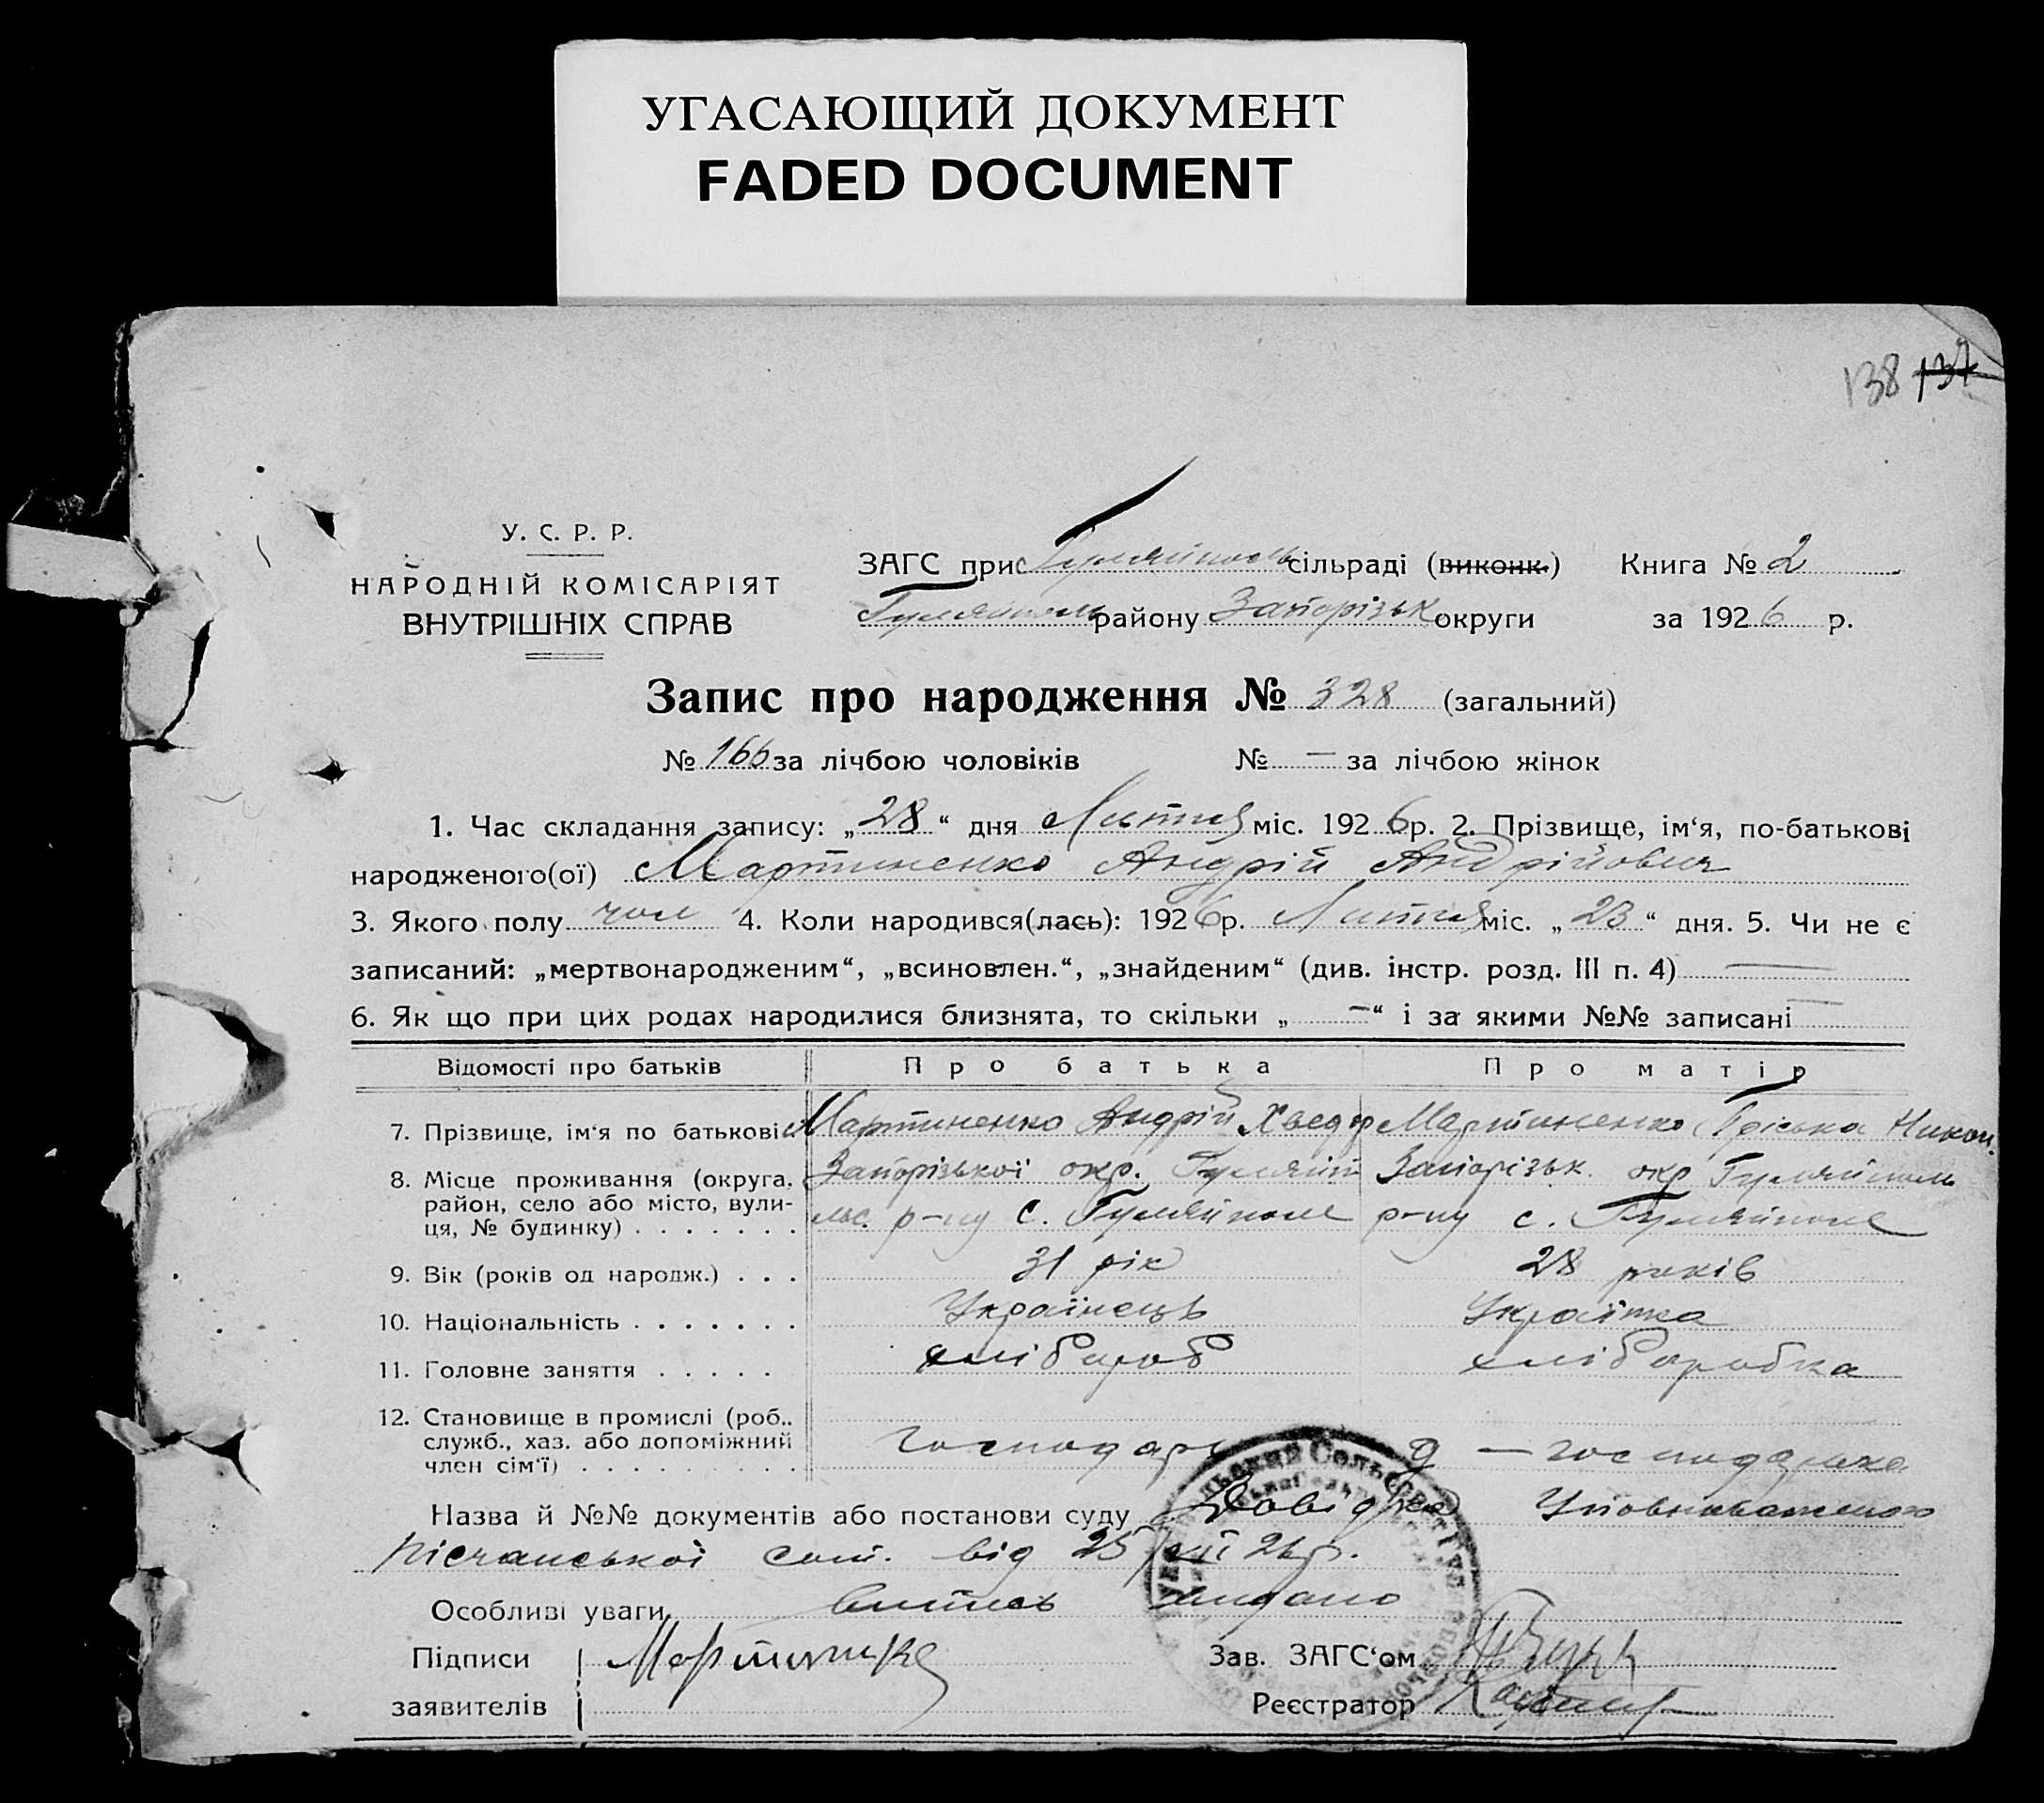 УГАСАЮЩИЙ ДОКУМЕНТ
FADED DOCUMENT
138 137
У. С. Р. Р.
НАРОДНІЙ КОМІСАРІЯТ
ВНУТРІШНІХ СПРАВ
ЗАГС при Гуляйполь сільраді (виконк.) Книга № 2
Гуляйполь району Запорізьк округи за 1926 р.
Запис про народження № 328 (загальний)
№ 166 за лічбою чоловіків № — за лічбою жінок
1. Час складання запису: „28“ дня Лютня міс. 1926 р. 2. Прізвище, ім‘я, по-батькові
народженого(ої) Мартиненко Андрій Андрійович
3. Якого полу чол 4. Коли народився(лась): 1926 р. Лютня міс. „23“ дня. 5. Чи не є
записаний: „мертвонародженим“, „всиновлен.“, „знайденим“ (див. інстр. розд. III п. 4) —
6. Як що при цих родах народилися близнята, то скільки „ — “ і за якими №№ записані —
Відомості про батьків Про батька Про матір
7. Прізвище, ім‘я по батькові Мартиненко Андрій Хведор Мартиненко Пріська Никон.
8. Місце проживання (округа, Запорізької окр. Гуляйпіль Запорізьк. окр Гуляйполь
район, село або місто, вули-
ця, № будинку) . . . . . . . р-ну с. Гуляйполе р-ну с. Гуляйполе
9. Вік (років од народж.) . . . 31 рік 28 років
10. Національність . . . . . . . Українець Українка
11. Головне заняття . . . . . хлібороб хліборобка
12. Становище в промислі (роб.,
служб., хаз. або допоміжний
член сім‘ї) . . . . . . . . . господарь — господарка
Назва й №№ документів або постанови суду Довідка Уповноваженого
Пісчанської сот. від 25/ІІ 26 р.
Особливі уваги витись видано
Підписи Мартиненко Зав. ЗАГС‘ом
заявителів Реєстратор